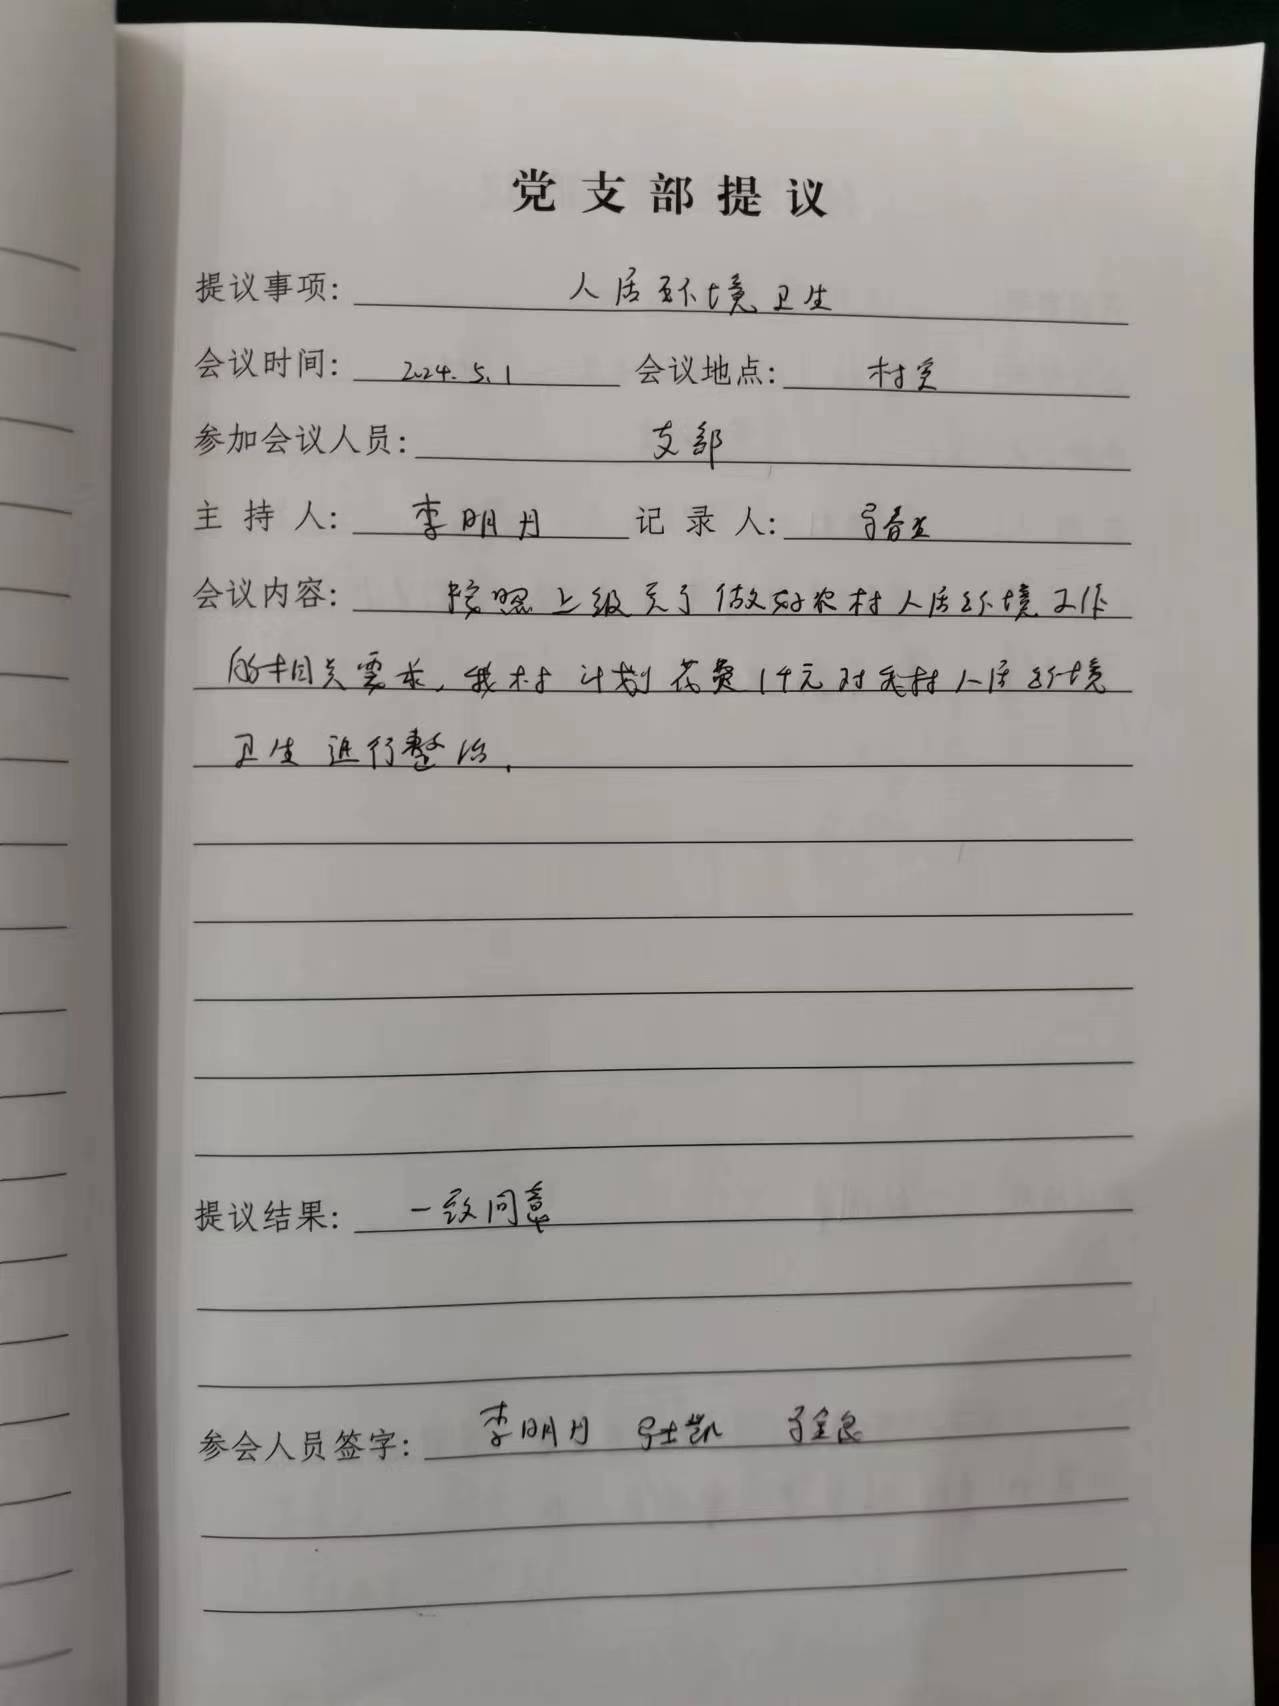 党支部提议
提议事项: 人居环境卫生
会议时间: 2024.5.1 会议地点: 村室
参加会议人员: 支部
主持人: 李明月 记录人:
会议内容: 按照上级关于做好农村人居环境工作
的相关需求,我村计划花费1千元对我村人居环境
卫生进行整治.
提议结果: 一致同意
参会人员签字: 李明月